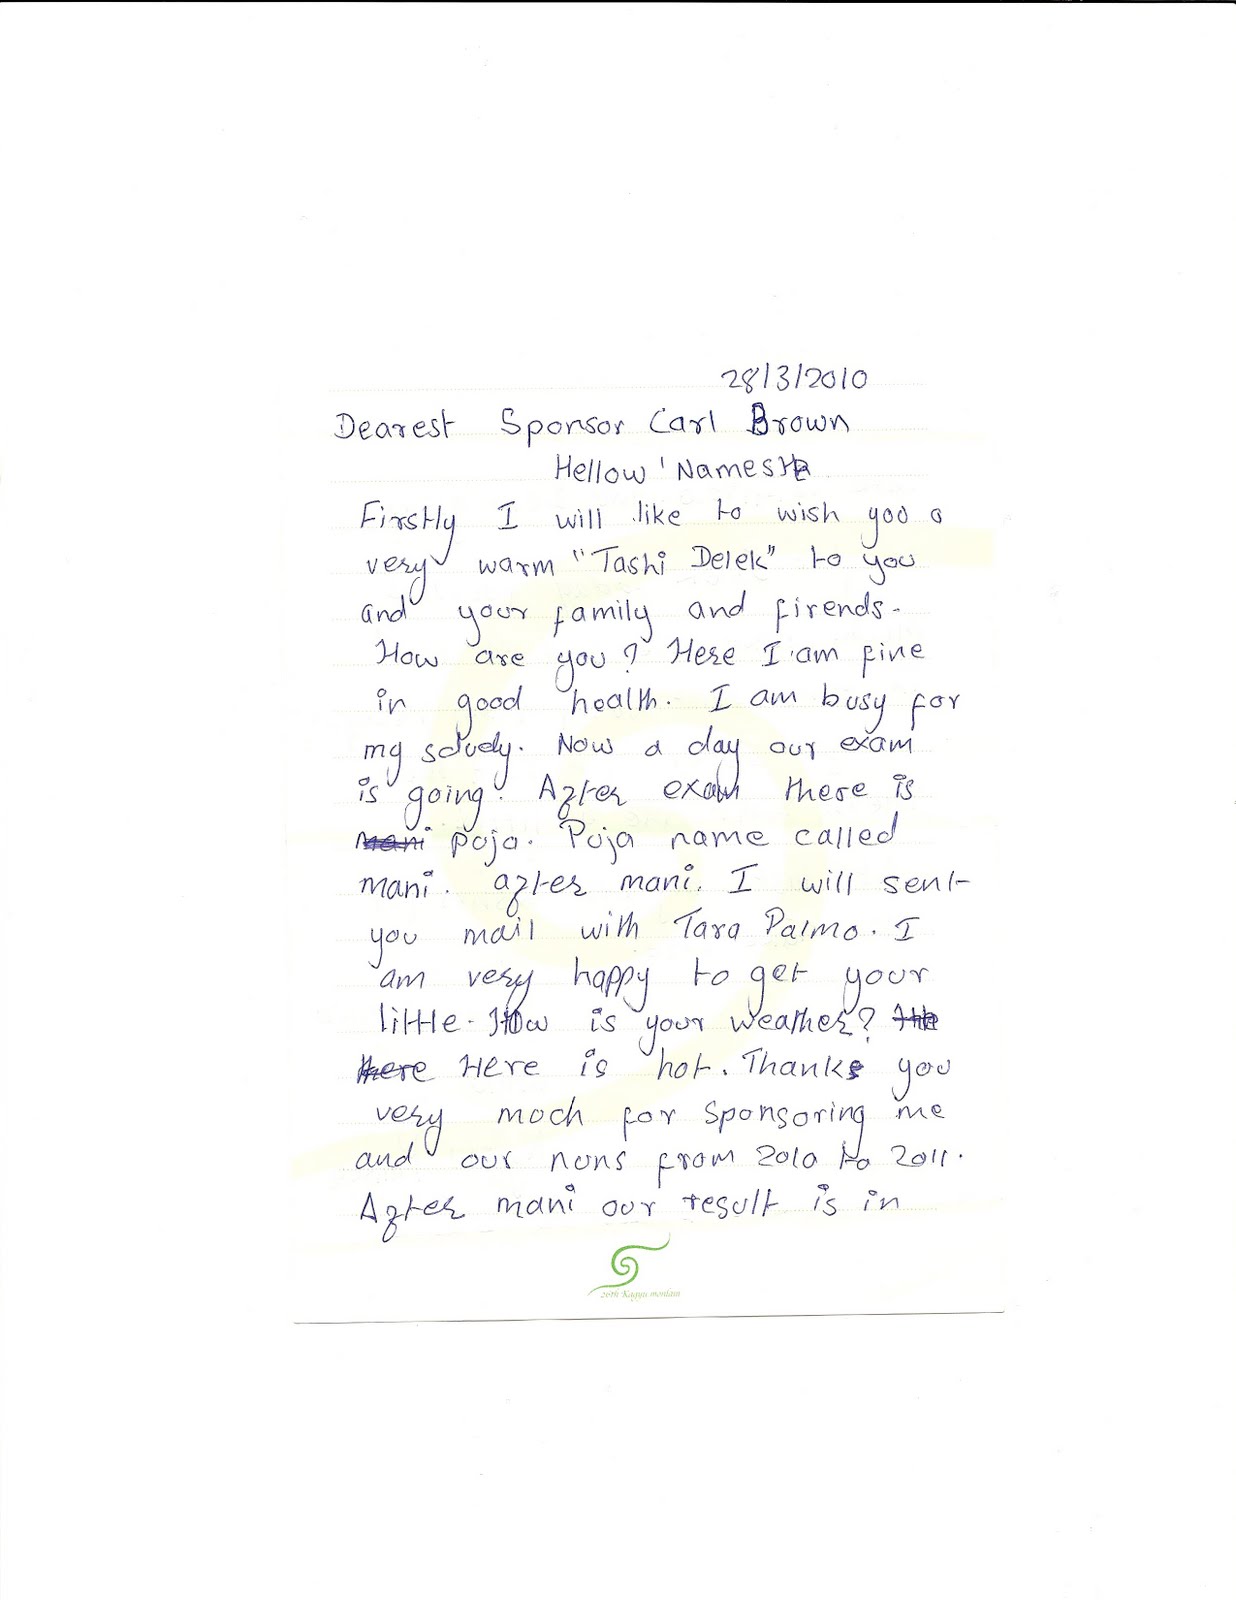 28/3/2010
Dearest Sponsor Carl Brown
Hellow 'Nameste
Firstly I will like to wish you a
very warm "Tashi Delek" to you
and your family and firends.
How are you? Here I am fine
in good health. I am busy for
my sdudy. Now a day our exam
is going. After exam there is
mani puja. Puja name called
mani. after mani. I will sent
you mail with Tara Palmo. I
am very happy to get your
little. How is your weather?
Here is hot. Thanks you
very moch for sponsoring me
and our nuns from 2010 to 2011.
After mani our result is in
26th Kagyu monlam